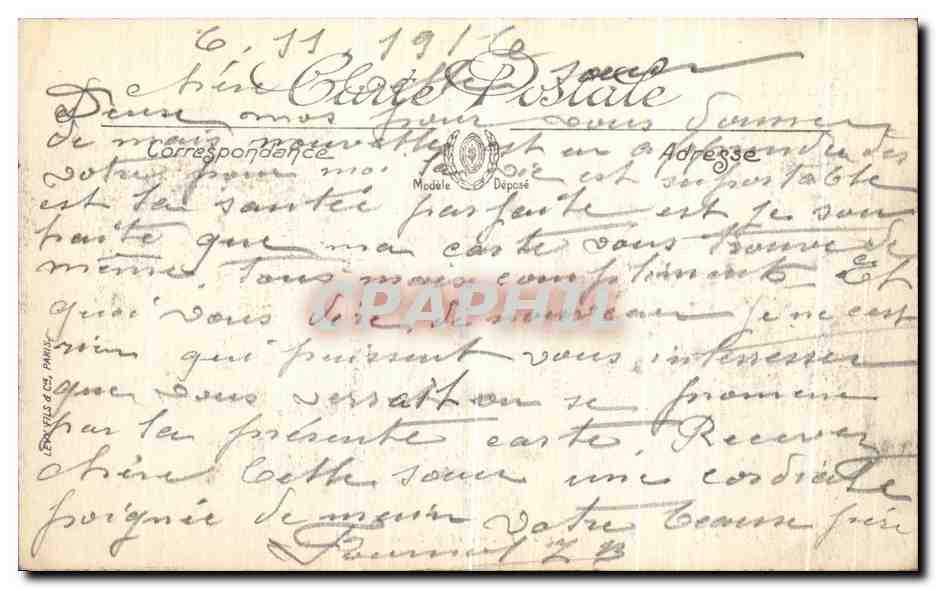 6.11.1916
Chère Belle Soeur
Carte Postale
Deux mos pour vous donner
de mais nouvelle est en a prendre des
Correspondance
Adresse
votre pour moi la vie est suportable
Modèle Déposé
est la santée parfaite est je sou
haite que ma carte vous trouve de
même. Tous mais compliments Et
CPAPHIL
quoi vous dire de nouveau je ne c'est
rien qui puissent vous interresser
que vous verrait on se promene
par la présente carte Recevez
chère Belle soeur une cordiale
poignée de main votre beause frère
LEVY FILS & Cie, PARIS